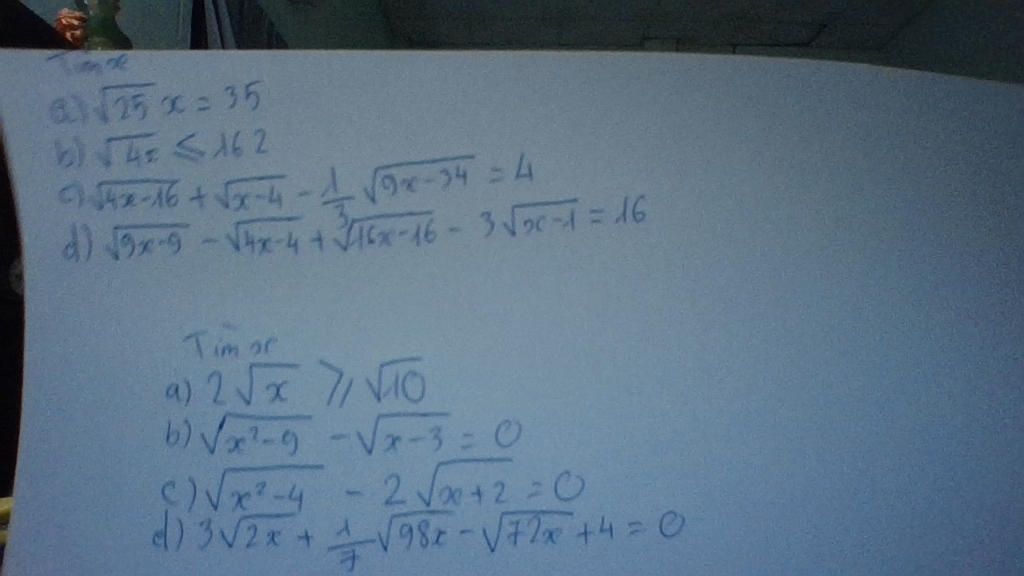 Tìm x
a) √25 x = 35
b) √4x ≤ 162
c) √4x-16 + √x-4 - 1/3 √9x-34 = 4
d) √9x-9 - √4x-4 + √16x-16 - 3√x-1 = 16
Tìm x
a) 2√x ⩾ √10
b) √x²-9 - √x-3 = 0
c) √x²-4 - 2√x+2 = 0
d) 3√2x + 1/7 √98x - √72x + 4 = 0